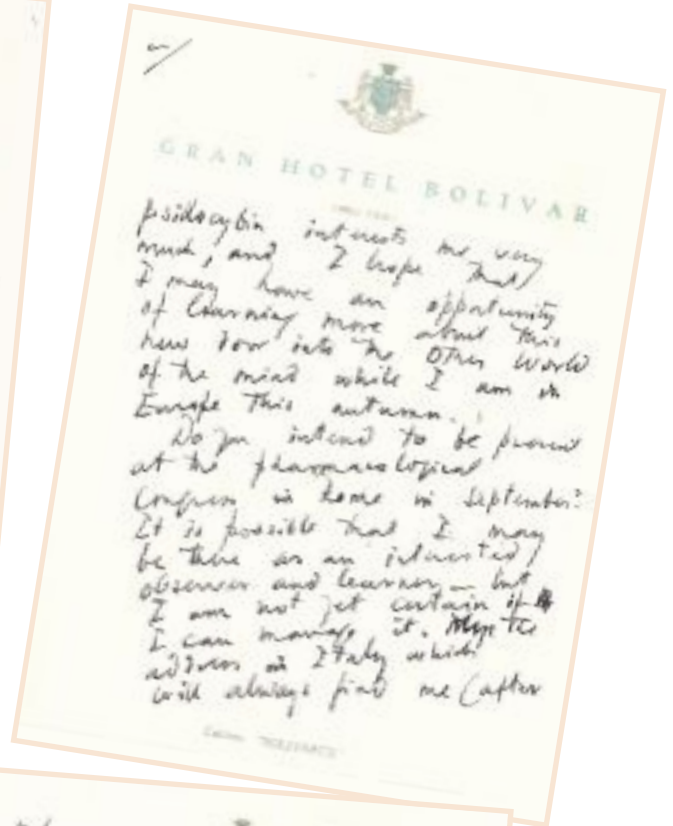 GRAN HOTEL BOLIVAR
psilocybin interests me very
much, and I hope that
I may have an opportunity
of learning more about this
new door into the Other World
of the mind while I am in
Europe this autumn.
Do you intend to be present
at the pharmacological
Congress in Rome in September?
It is possible that I may
be there as an interested
observer and learner — but
I am not yet certain if
I can manage it. The
address in Italy which
will always find me (after